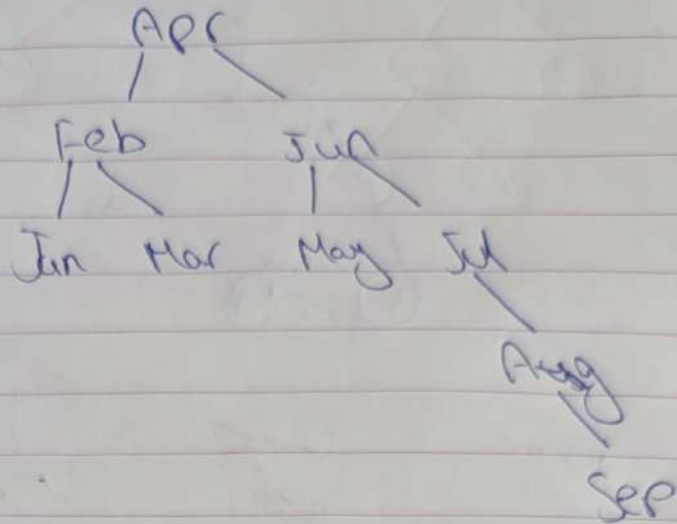 Apr
Feb Jun
Jan Mar May Jul
Aug
Sep